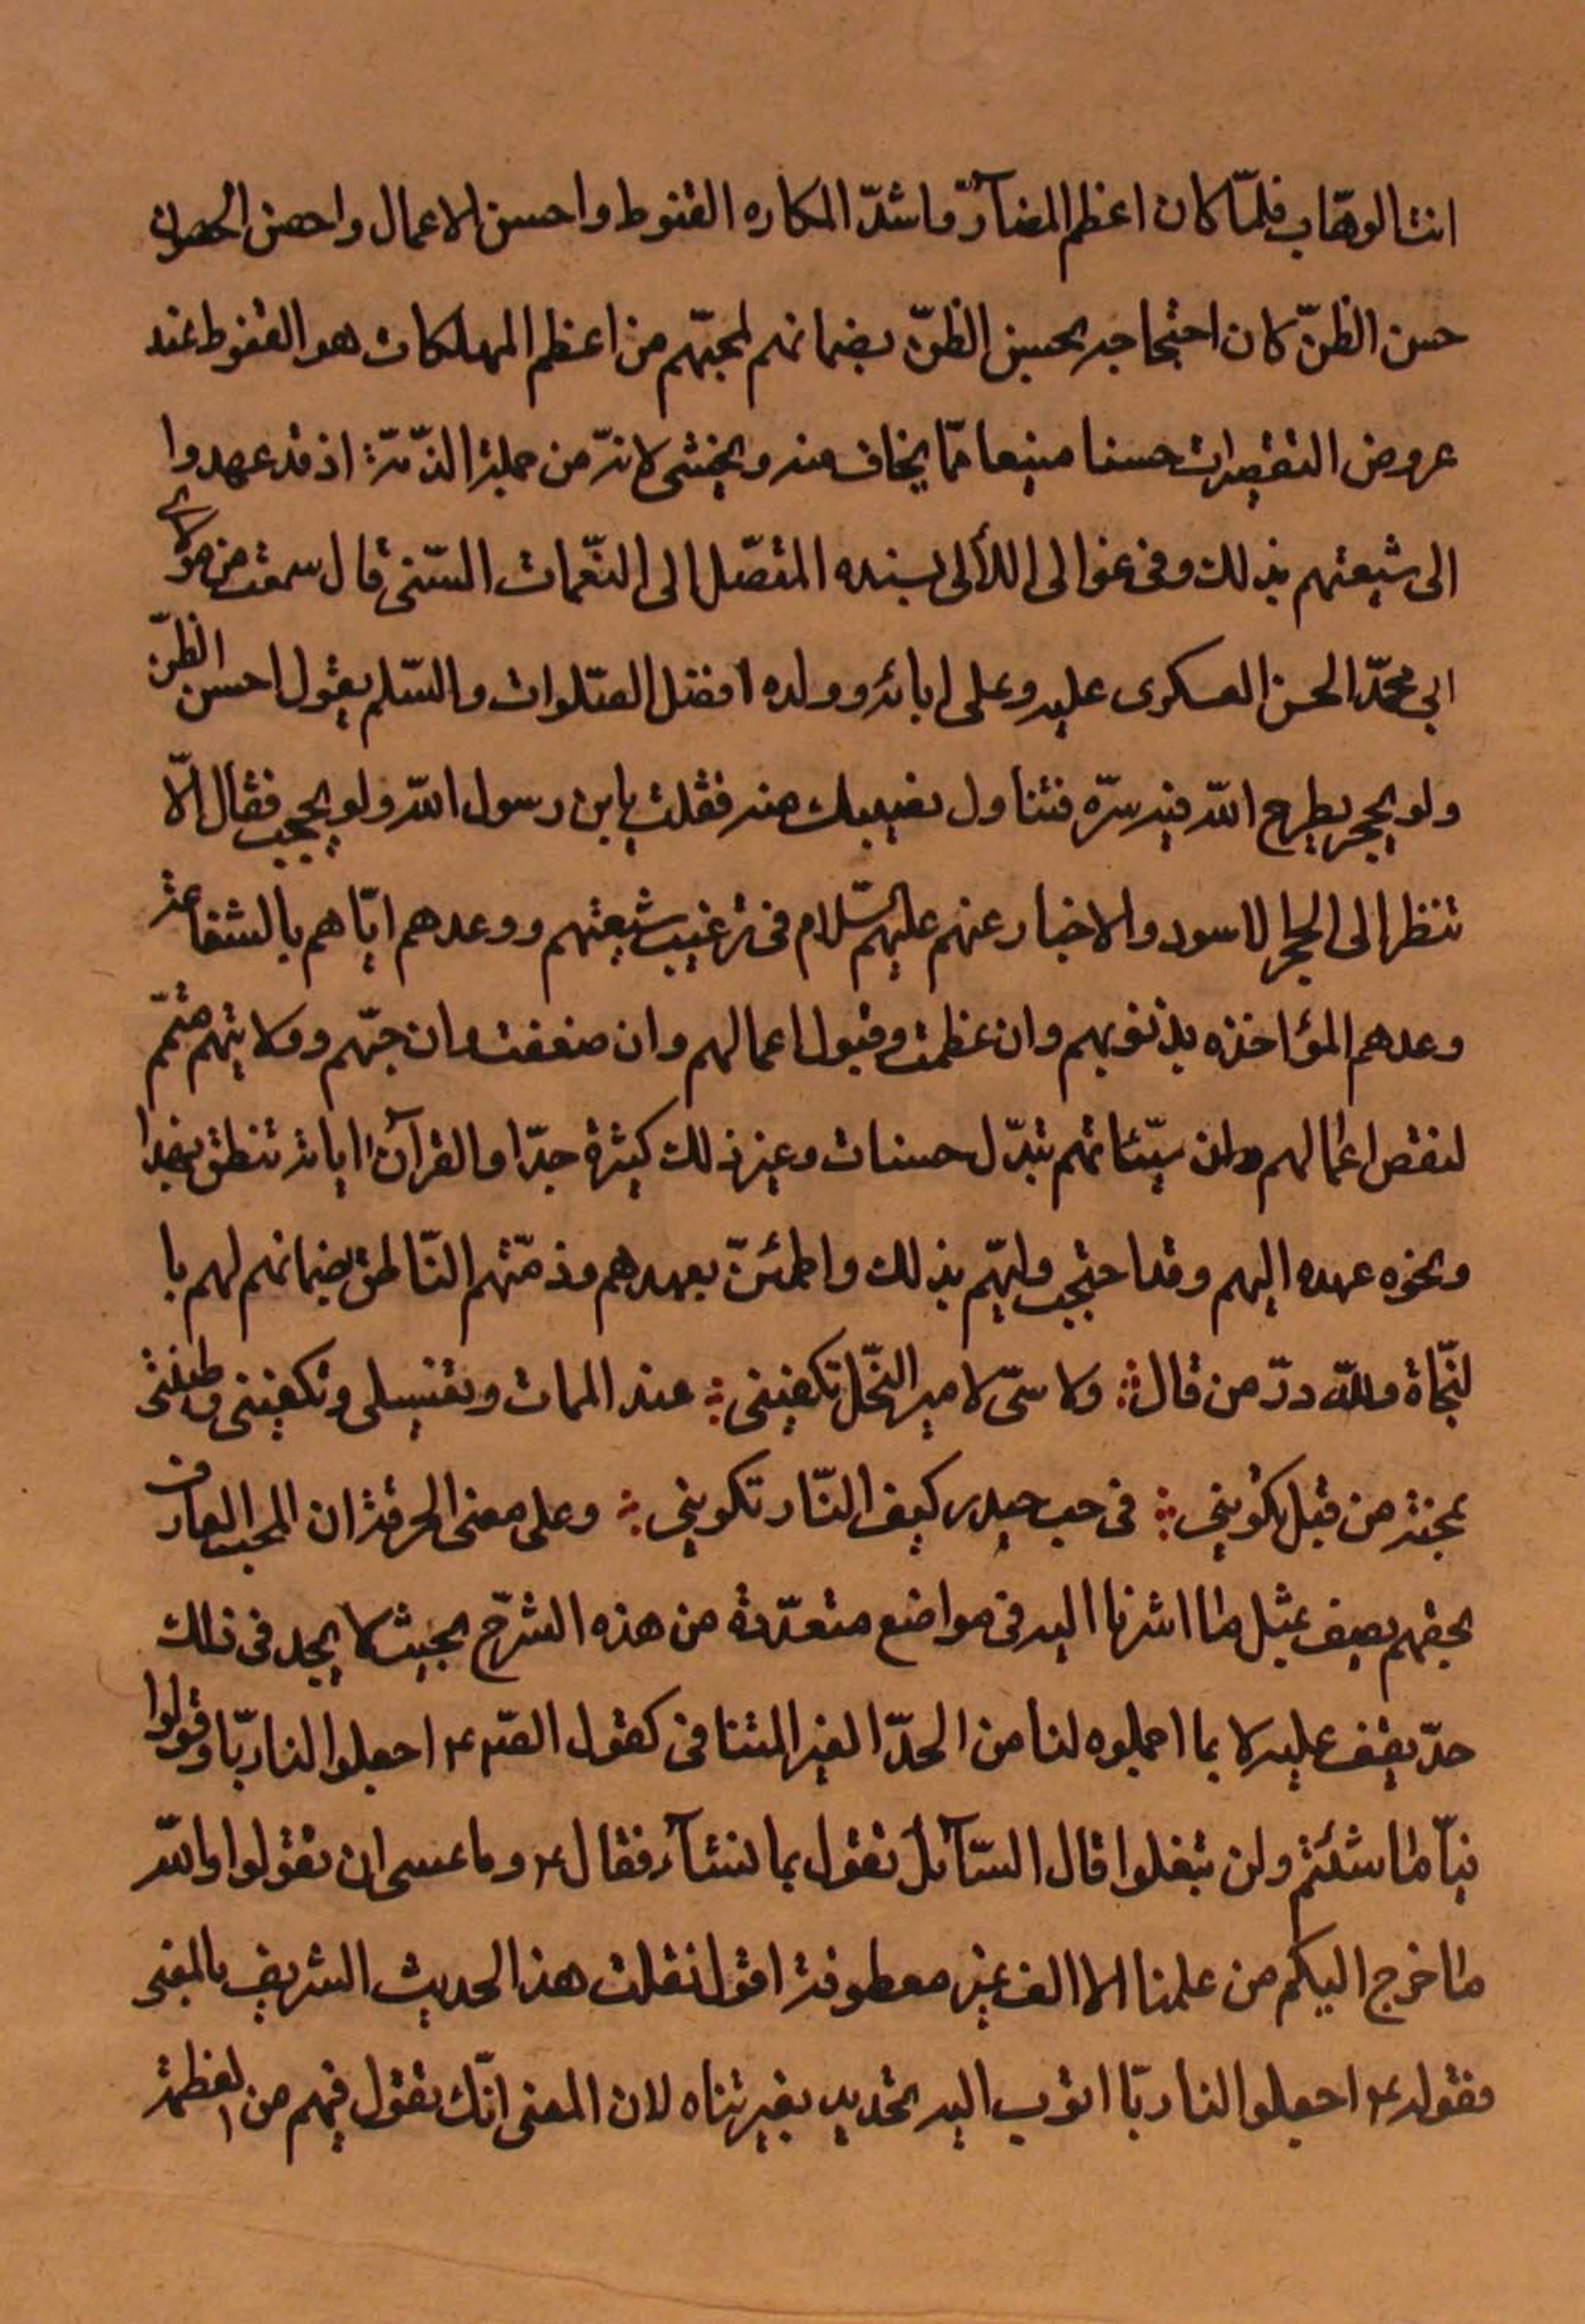 انت الوهّاب فلمّا كان اعظم المضآرّ واشدّ المكاره القنوط واحسن الاعمال واحصن الحصون
حسن الظنّ كان احتجاجه بحسن الظنّ بضمانهم لمحبّهم من اعظم المهلكات هو القنوط عند
عروض التقصيرات حسنا منيعا ممّا يخاف منه ويخشى لانّه من جملة الذّمّة اذ قد عهدوا
الى شيعتهم بذلك وفى عوالى اللألى بسنده المتصّل الى قال سمعت من مولاى
ابى محمّد الحسن العسكرى عليه وعلى ابائه وولده افضل الصّلوات والسّلم يقول احسن الظنّ
ولو بحجر يطرح اللّه فيه سرّه فتناول نصيبك منه فقلت يابن رسول اللّه ولو بحجر فقال الّا
تنظر الى الحجر الاسود والاخبار عنهم عليهم السّلام فى ترغيب شيعتهم ووعدهم ايّاهم بالشفاعة
وعدهم المؤاخذه بذنوبهم وان عظمت وقبول اعمالهم وان ضعفت وان حبّهم وولايتهم متمّم
لنقص اعمالهم وان سيّئاتهم تبدّل حسنات وغير ذلك كثيرة جدّا والقرآن اياته تنطق بهذا
ونحوه عهده اليهم وقد احتجب وليّهم بذلك واطمئنّ بعهدهم وذمّتهم النّاطق بضمانهم لهم با
لنّجاة وللّه درّ من قال ولاىّ لامير النّحل تكفينى عند الممات وتغسيلى وتكفينى وطينتى
عجنت من قبل تكوينى فى حب حيدر كيف النّار تكوينى وعلى معنى الحرفة ان المحب العارف
بحقهم يصف بمثل ما اشرنا اليه فى مواضع متعدّدة من هذه الشرح بحيث لا يجد فى ذلك
حدّ يقف عليه لا بما احملوه لنا من الحدّ الغير المتنافى كقول الصّ ع اجعلوا لنا ربّا وقولوا
فينا ما شئتم ولن تبغلوا قال السّآئل نقول بما نشآء فقال ع وما عسى ان تقولوا واللّه
ما خرج اليكم من علمنا الا الف غير معطوفة اقول نقلت هذا الحديث الشريف بالمعنى
فقوله ع اجعلوا لنا ربّا اتؤب اليه تحديد بغير تناه لان المعنى انّك تقول فيهم من العظمة